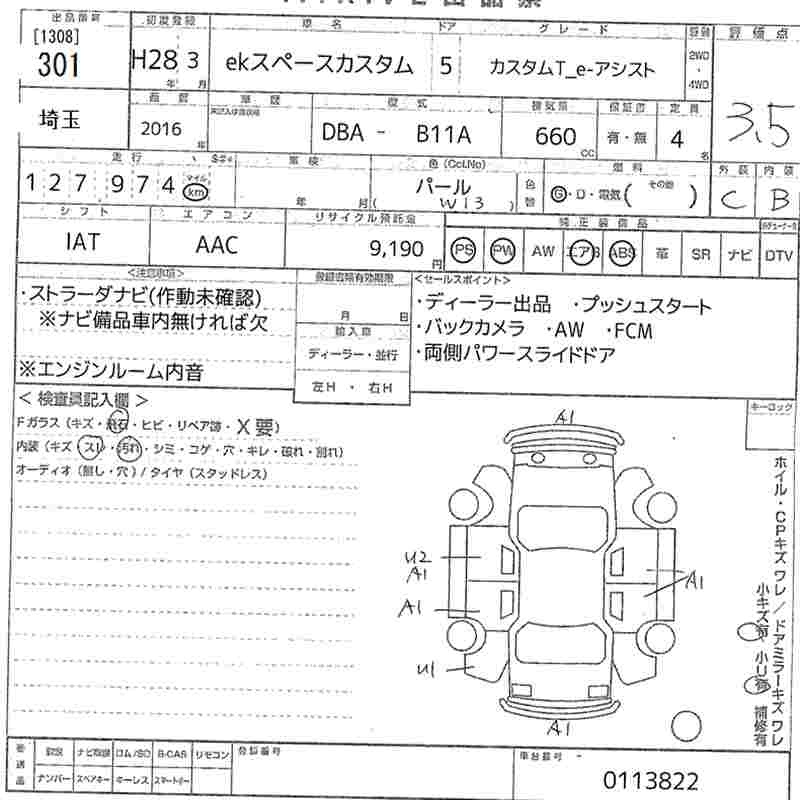 出品票
出品番号 初度登録 車名 ドア グレード 評価点
[1308]
301 H28 3 ekスペースカスタム 5 カスタムT_e-アシスト 2WD・4WD 3.5
年 月
埼玉 2016 年 型式 DBA - B11A 排気量 660 CC 保証書 有・無 定員 4 名
走行 車検 色(Col.No) 燃料 外装 内装
127,974 マイル km 年 月( パール W13 色替 G・D・電気( その他 ) C B
シフト エアコン リサイクル預託金 純正装備品
IAT AAC 9,190 円 PS PW AW エアB ABS 革 SR ナビ DTV
<注意事項> 登録書類有効期限 <セールスポイント>
・ストラーダナビ(作動未確認) 月 日 ・ディーラー出品 ・プッシュスタート
※ナビ備品車内無ければ欠 輸入車 ・バックカメラ ・AW ・FCM
ディーラー・並行 ・両側パワースライドドア
※エンジンルーム内音 左H ・ 右H
<検査員記入欄> キーロック
Fガラス(キズ・飛石・ヒビ・リペア跡・X要)
内装(キズ スレ・汚れ・シミ・コゲ・穴・キレ・破れ・割れ)
オーディオ(無し・穴)/タイヤ(スタッドレス)
A1
U2
A1
A1
A1
U1
A1
ホイル・CPキズワレ/ドアミラーキズワレ
小キズ有、小U有 補修有
後送品 取説 ナビ取説 ロム/SD B-CAS リモコン 登録番号 車台番号 -
ナンバー スペアキー キーレス スマートキー 0113822